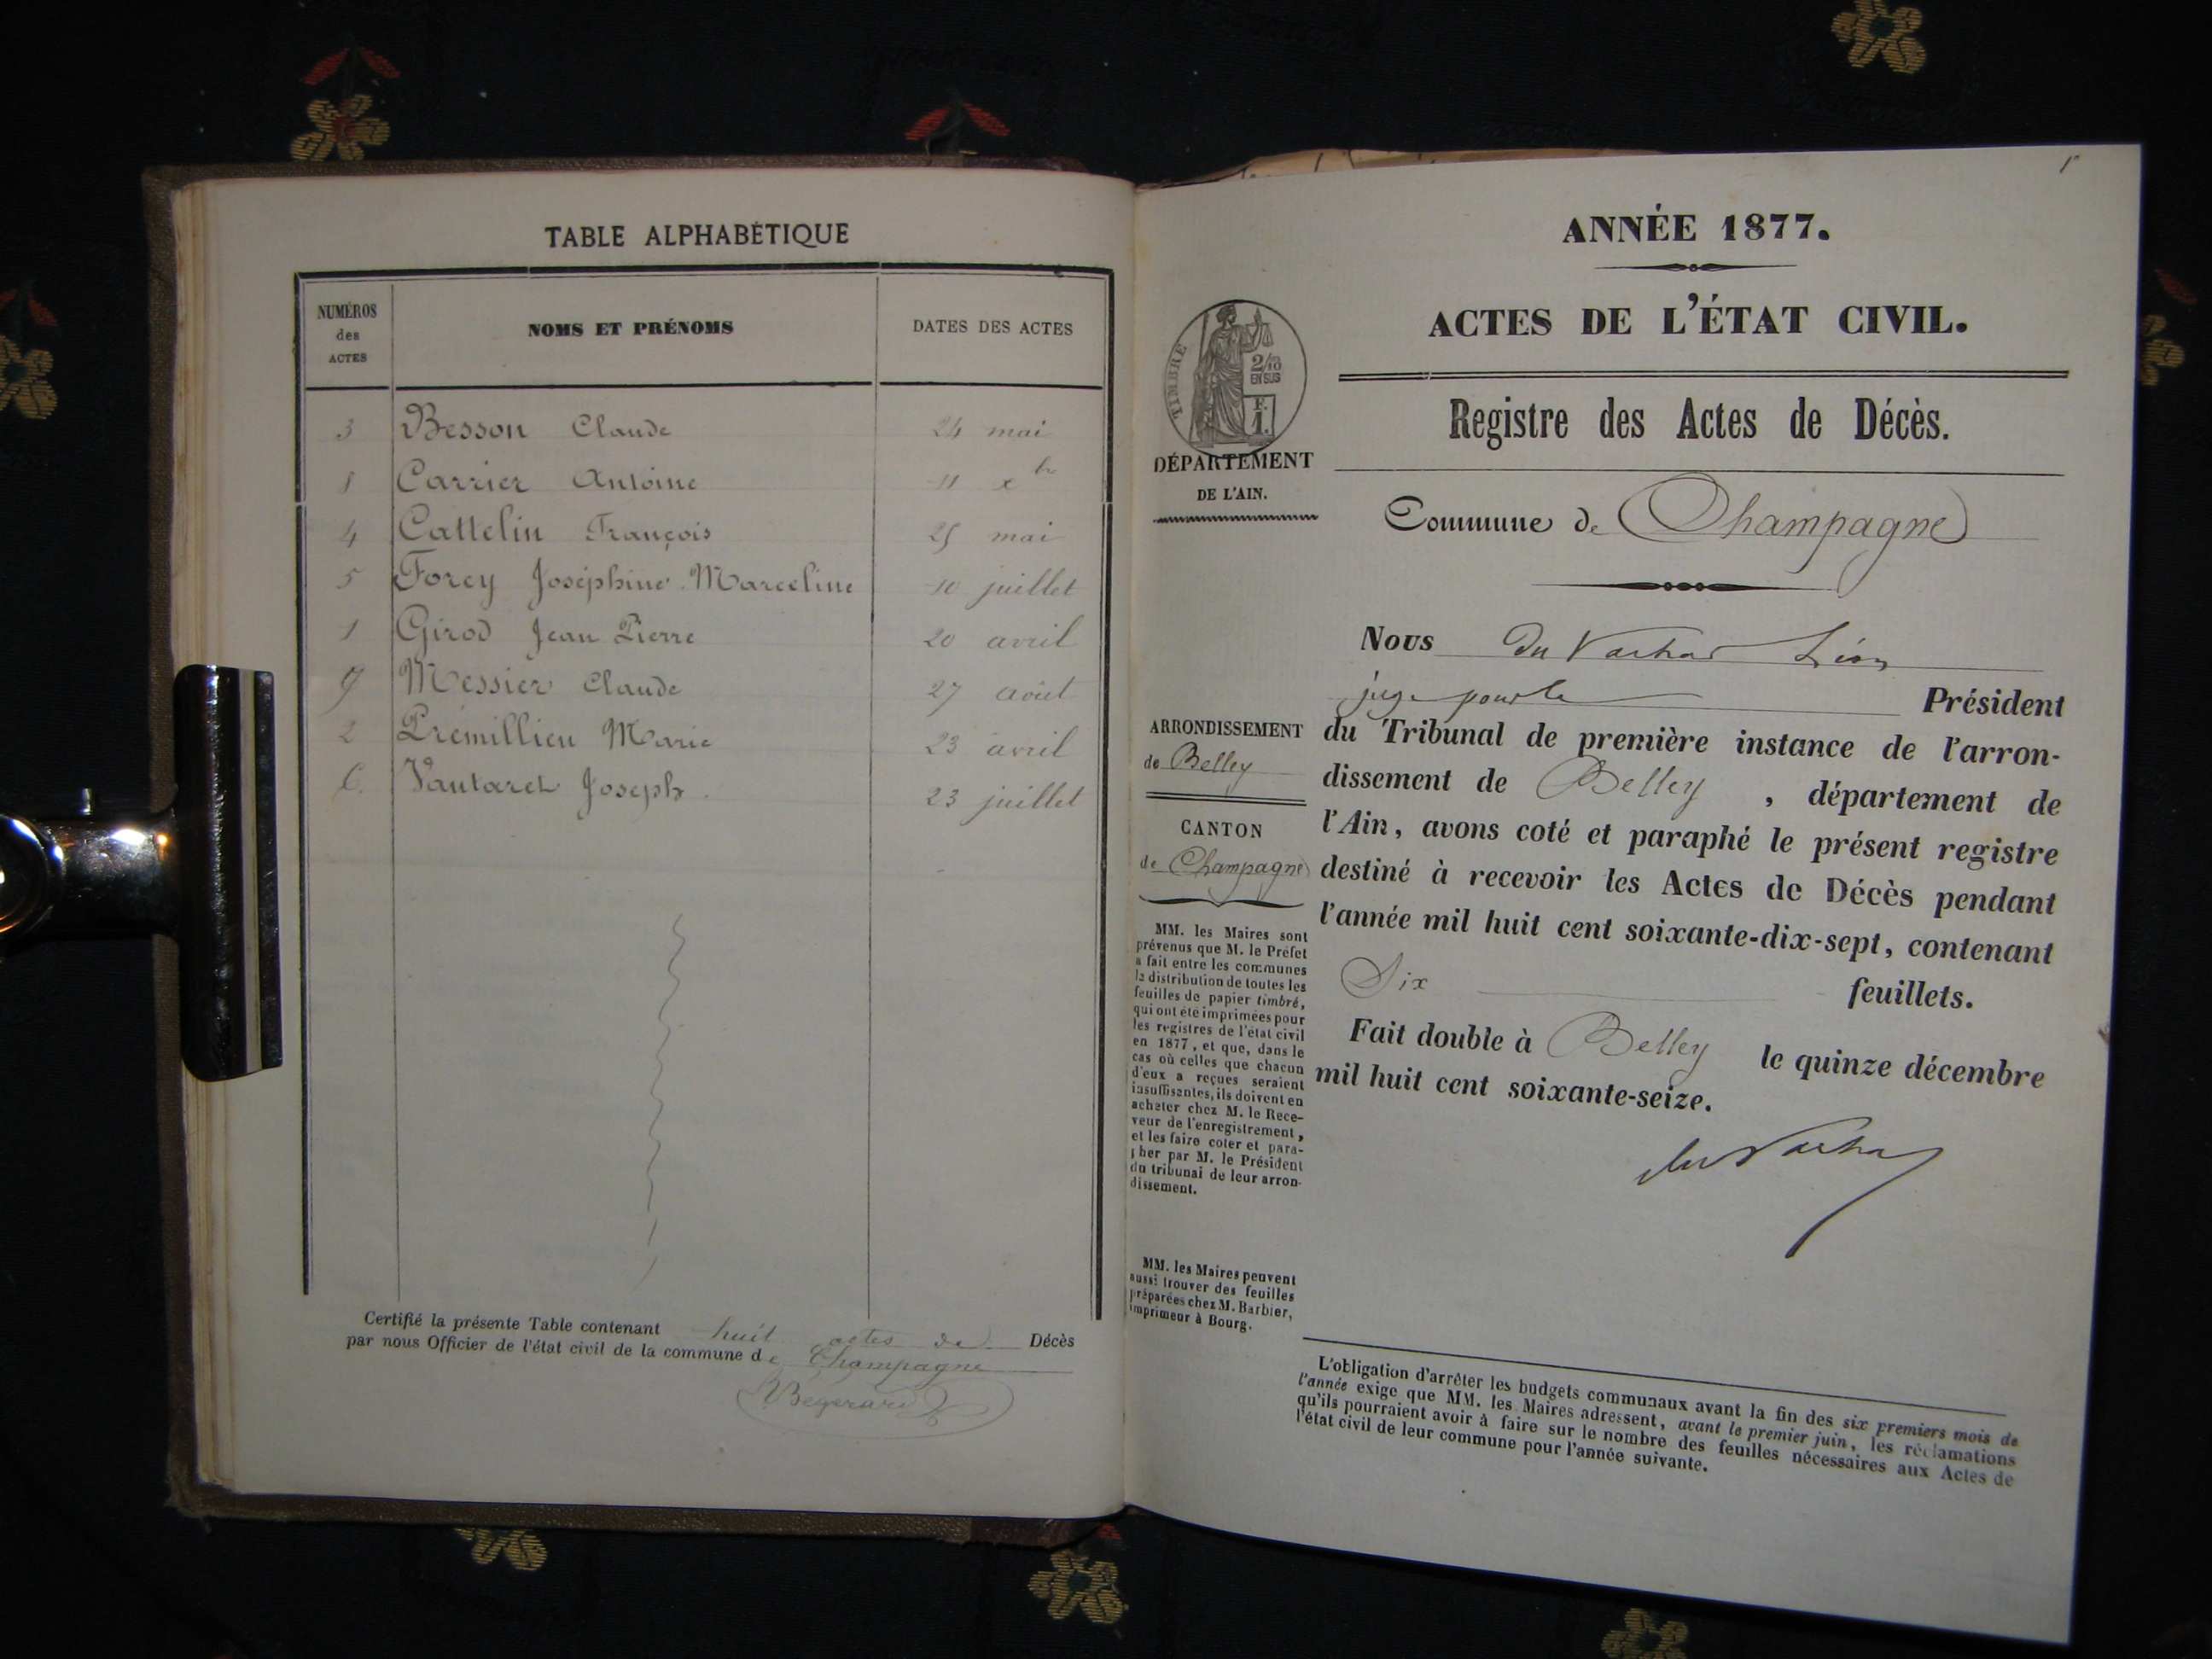 TABLE ALPHABÉTIQUE
NUMÉROS des ACTES NOMS ET PRÉNOMS DATES DES ACTES
3 Besson Claude 24 mai
Carrier Antoine 11 xbre
4 Cattelin François 25 mai
5 Forey Joséphine Marceline 10 juillet
1 Girod Jean Pierre 20 avril
Messier Claude 27 août
2 Prémillieu Marie 23 avril
6 Vautaret Joseph. 23 juillet
Certifié la présente Table contenant huit actes de Décès
par nous Officier de l'état civil de la commune de Champagne
1r
ANNÉE 1877.
ACTES DE L'ÉTAT CIVIL.
Registre des Actes de Décès.
TIMBRE
2/10
EN SUS
F.
1.
DÉPARTEMENT
DE L'AIN.
Commune de Champagne
Nous Léon
juge pour le Président
du Tribunal de première instance de l'arron-
dissement de Belley , département de
l'Ain, avons coté et paraphé le présent registre
destiné à recevoir les Actes de Décès pendant
l'année mil huit cent soixante-dix-sept, contenant
Six feuillets.
Fait double à Belley le quinze décembre
mil huit cent soixante-seize.
ARRONDISSEMENT
de Belley
CANTON
de Champagne
MM. les Maires sont
prévenus que M. le Préfet
a fait entre les communes
la distribution de toutes les
feuilles de papier timbré,
qui ont été imprimées pour
les registres de l'état civil
en 1877, et que, dans le
cas où celles que chacun
d'eux a reçues seraient
insuffisantes, ils doivent en
acheter chez M. le Rece-
veur de l'enregistrement,
et les faire coter et para-
pher par M. le Président
du tribunal de leur arron-
dissement.
MM. les Maires peuvent
aussi trouver des feuilles
préparées chez M. Barbier,
imprimeur à Bourg.
L'obligation d'arrêter les budgets communaux avant la fin des six premiers mois de
l'année exige que MM. les Maires adressent, avant le premier juin, les réclamations
qu'ils pourraient avoir à faire sur le nombre des feuilles nécessaires aux Actes de
l'état civil de leur commune pour l'année suivante.